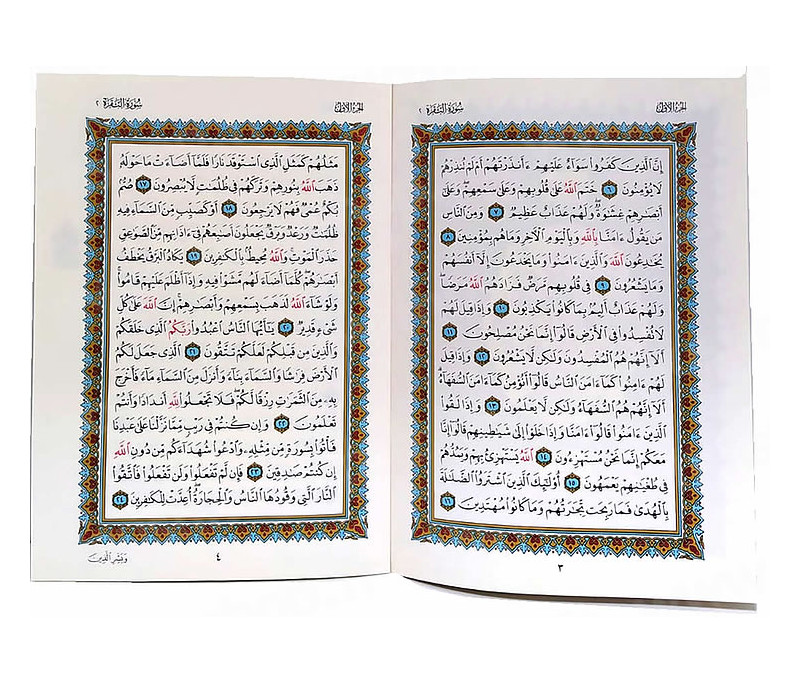 الجزء الأول
سورة البقرة ٢
إِنَّ ٱلَّذِينَ كَفَرُوا۟ سَوَآءٌ عَلَيْهِمْ ءَأَنذَرْتَهُمْ أَمْ لَمْ تُنذِرْهُمْ
لَا يُؤْمِنُونَ ٦ خَتَمَ ٱللَّهُ عَلَىٰ قُلُوبِهِمْ وَعَلَىٰ سَمْعِهِمْ وَعَلَىٰٓ
أَبْصَٰرِهِمْ غِشَٰوَةٌ وَلَهُمْ عَذَابٌ عَظِيمٌ ٧ وَمِنَ ٱلنَّاسِ
مَن يَقُولُ ءَامَنَّا بِٱللَّهِ وَبِٱلْيَوْمِ ٱلْءَاخِرِ وَمَا هُم بِمُؤْمِنِينَ ٨
يُخَٰدِعُونَ ٱللَّهَ وَٱلَّذِينَ ءَامَنُوا۟ وَمَا يَخْدَعُونَ إِلَّآ أَنفُسَهُمْ
وَمَا يَشْعُرُونَ ٩ فِى قُلُوبِهِم مَّرَضٌ فَزَادَهُمُ ٱللَّهُ مَرَضًا
وَلَهُمْ عَذَابٌ أَلِيمٌۢ بِمَا كَانُوا۟ يَكْذِبُونَ ١٠ وَإِذَا قِيلَ لَهُمْ
لَا تُفْسِدُوا۟ فِى ٱلْأَرْضِ قَالُوٓا۟ إِنَّمَا نَحْنُ مُصْلِحُونَ ١١
أَلَآ إِنَّهُمْ هُمُ ٱلْمُفْسِدُونَ وَلَٰكِن لَّا يَشْعُرُونَ ١٢ وَإِذَا قِيلَ
لَهُمْ ءَامِنُوا۟ كَمَآ ءَامَنَ ٱلنَّاسُ قَالُوٓا۟ أَنُؤْمِنُ كَمَآ ءَامَنَ ٱلسُّفَهَآءُ
أَلَآ إِنَّهُمْ هُمُ ٱلسُّفَهَآءُ وَلَٰكِن لَّا يَعْلَمُونَ ١٣ وَإِذَا لَقُوا۟
ٱلَّذِينَ ءَامَنُوا۟ قَالُوٓا۟ ءَامَنَّا وَإِذَا خَلَوْا۟ إِلَىٰ شَيَٰطِينِهِمْ قَالُوٓا۟ إِنَّا
مَعَكُمْ إِنَّمَا نَحْنُ مُسْتَهْزِءُونَ ١٤ ٱللَّهُ يَسْتَهْزِئُ بِهِمْ وَيَمُدُّهُمْ
فِى طُغْيَٰنِهِمْ يَعْمَهُونَ ١٥ أُو۟لَٰٓئِكَ ٱلَّذِينَ ٱشْتَرَوُا۟ ٱلضَّلَٰلَةَ
بِٱلْهُدَىٰ فَمَا رَبِحَت تِّجَٰرَتُهُمْ وَمَا كَانُوا۟ مُهْتَدِينَ ١٦
٣
الجزء الأول
سورة البقرة ٢
مَثَلُهُمْ كَمَثَلِ ٱلَّذِى ٱسْتَوْقَدَ نَارًا فَلَمَّآ أَضَآءَتْ مَا حَوْلَهُۥ
ذَهَبَ ٱللَّهُ بِنُورِهِمْ وَتَرَكَهُمْ فِى ظُلُمَٰتٍ لَّا يُبْصِرُونَ ١٧ صُمٌّۢ
بُكْمٌ عُمْىٌ فَهُمْ لَا يَرْجِعُونَ ١٨ أَوْ كَصَيِّبٍ مِّنَ ٱلسَّمَآءِ فِيهِ
ظُلُمَٰتٌ وَرَعْدٌ وَبَرْقٌ يَجْعَلُونَ أَصَٰبِعَهُمْ فِىٓ ءَاذَانِهِم مِّنَ ٱلصَّوَٰعِقِ
حَذَرَ ٱلْمَوْتِ وَٱللَّهُ مُحِيطٌۢ بِٱلْكَٰفِرِينَ ١٩ يَكَادُ ٱلْبَرْقُ يَخْطَفُ
أَبْصَٰرَهُمْ كُلَّمَآ أَضَآءَ لَهُم مَّشَوْا۟ فِيهِ وَإِذَآ أَظْلَمَ عَلَيْهِمْ قَامُوا۟
وَلَوْ شَآءَ ٱللَّهُ لَذَهَبَ بِسَمْعِهِمْ وَأَبْصَٰرِهِمْ إِنَّ ٱللَّهَ عَلَىٰ كُلِّ
شَىْءٍ قَدِيرٌ ٢٠ يَٰٓأَيُّهَا ٱلنَّاسُ ٱعْبُدُوا۟ رَبَّكُمُ ٱلَّذِى خَلَقَكُمْ
وَٱلَّذِينَ مِن قَبْلِكُمْ لَعَلَّكُمْ تَتَّقُونَ ٢١ ٱلَّذِى جَعَلَ لَكُمُ
ٱلْأَرْضَ فِرَٰشًا وَٱلسَّمَآءَ بِنَآءً وَأَنزَلَ مِنَ ٱلسَّمَآءِ مَآءً فَأَخْرَجَ
بِهِۦ مِنَ ٱلثَّمَرَٰتِ رِزْقًا لَّكُمْ فَلَا تَجْعَلُوا۟ لِلَّهِ أَندَادًا وَأَنتُمْ
تَعْلَمُونَ ٢٢ وَإِن كُنتُمْ فِى رَيْبٍ مِّمَّا نَزَّلْنَا عَلَىٰ عَبْدِنَا
فَأْتُوا۟ بِسُورَةٍ مِّن مِّثْلِهِۦ وَٱدْعُوا۟ شُهَدَآءَكُم مِّن دُونِ ٱللَّهِ
إِن كُنتُمْ صَٰدِقِينَ ٢٣ فَإِن لَّمْ تَفْعَلُوا۟ وَلَن تَفْعَلُوا۟ فَٱتَّقُوا۟
ٱلنَّارَ ٱلَّتِى وَقُودُهَا ٱلنَّاسُ وَٱلْحِجَارَةُ أُعِدَّتْ لِلْكَٰفِرِينَ ٢٤
٤
وَبَشِّرِ ٱلَّذِينَ